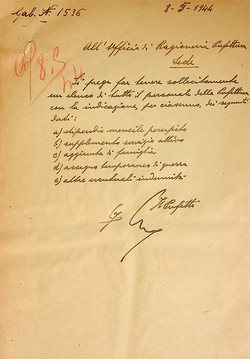 Gab. N. 1536
8-5-1944
All'Ufficio di Ragioneria Prefettura
Sede
Si prega far tenere sollecitamente
un elenco di tutto il personale della Prefettura
con la indicazione, per ciascuno, dei seguenti
dati:
a) stipendio mensile percepito
b) supplemento servizio attivo
c) aggiunta di famiglia
d) assegno temporaneo di guerra
e) altre eventuali indennità
Il Prefetto